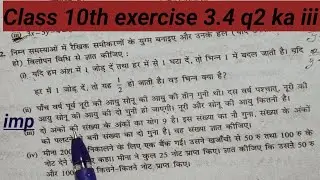 Class 10th exercise 3.4 q2 ka iii
2. निम्न समस्याओं में रैखिक समीकरणों के युग्म बनाइए और उनके हल
हो) विलोपन विधि से ज्ञात कीजिए :
(i) यदि हम अंश में 1 जोड़ दें तथा हर में से 1 घटा दें, तो भिन्न 1 में बदल जाती है। यदि
हर में 1 जोड़ दें, तो यह 1/2 हो जाती है। वह भिन्न क्या है?
(ii) पाँच वर्ष पूर्व नूरी की आयु सोनू की आयु की तीन गुनी थी। दस वर्ष पश्चात्, नूरी की
आयु सोनू की आयु की दो गुनी हो जाएगी। नूरी और सोनू की आयु कितनी है।
imp
दो अंकों की संख्या के अंकों का योग 9 है। इस संख्या का नौ गुना, संख्या के अंकों
को पलटने से बनी संख्या का दो गुना है। वह संख्या ज्ञात कीजिए।
(iv) मीना 2000 निकालने के लिए एक बैंक गई। उसने खजाँची से 50 रु तथा 100 रु के
नोट देने के लिए कहा। मीना ने कुल 25 नोट प्राप्त किए। ज्ञात कीजिए कि उसने 50 रु
और 100 रु के कितने-कितने नोट प्राप्त किए।